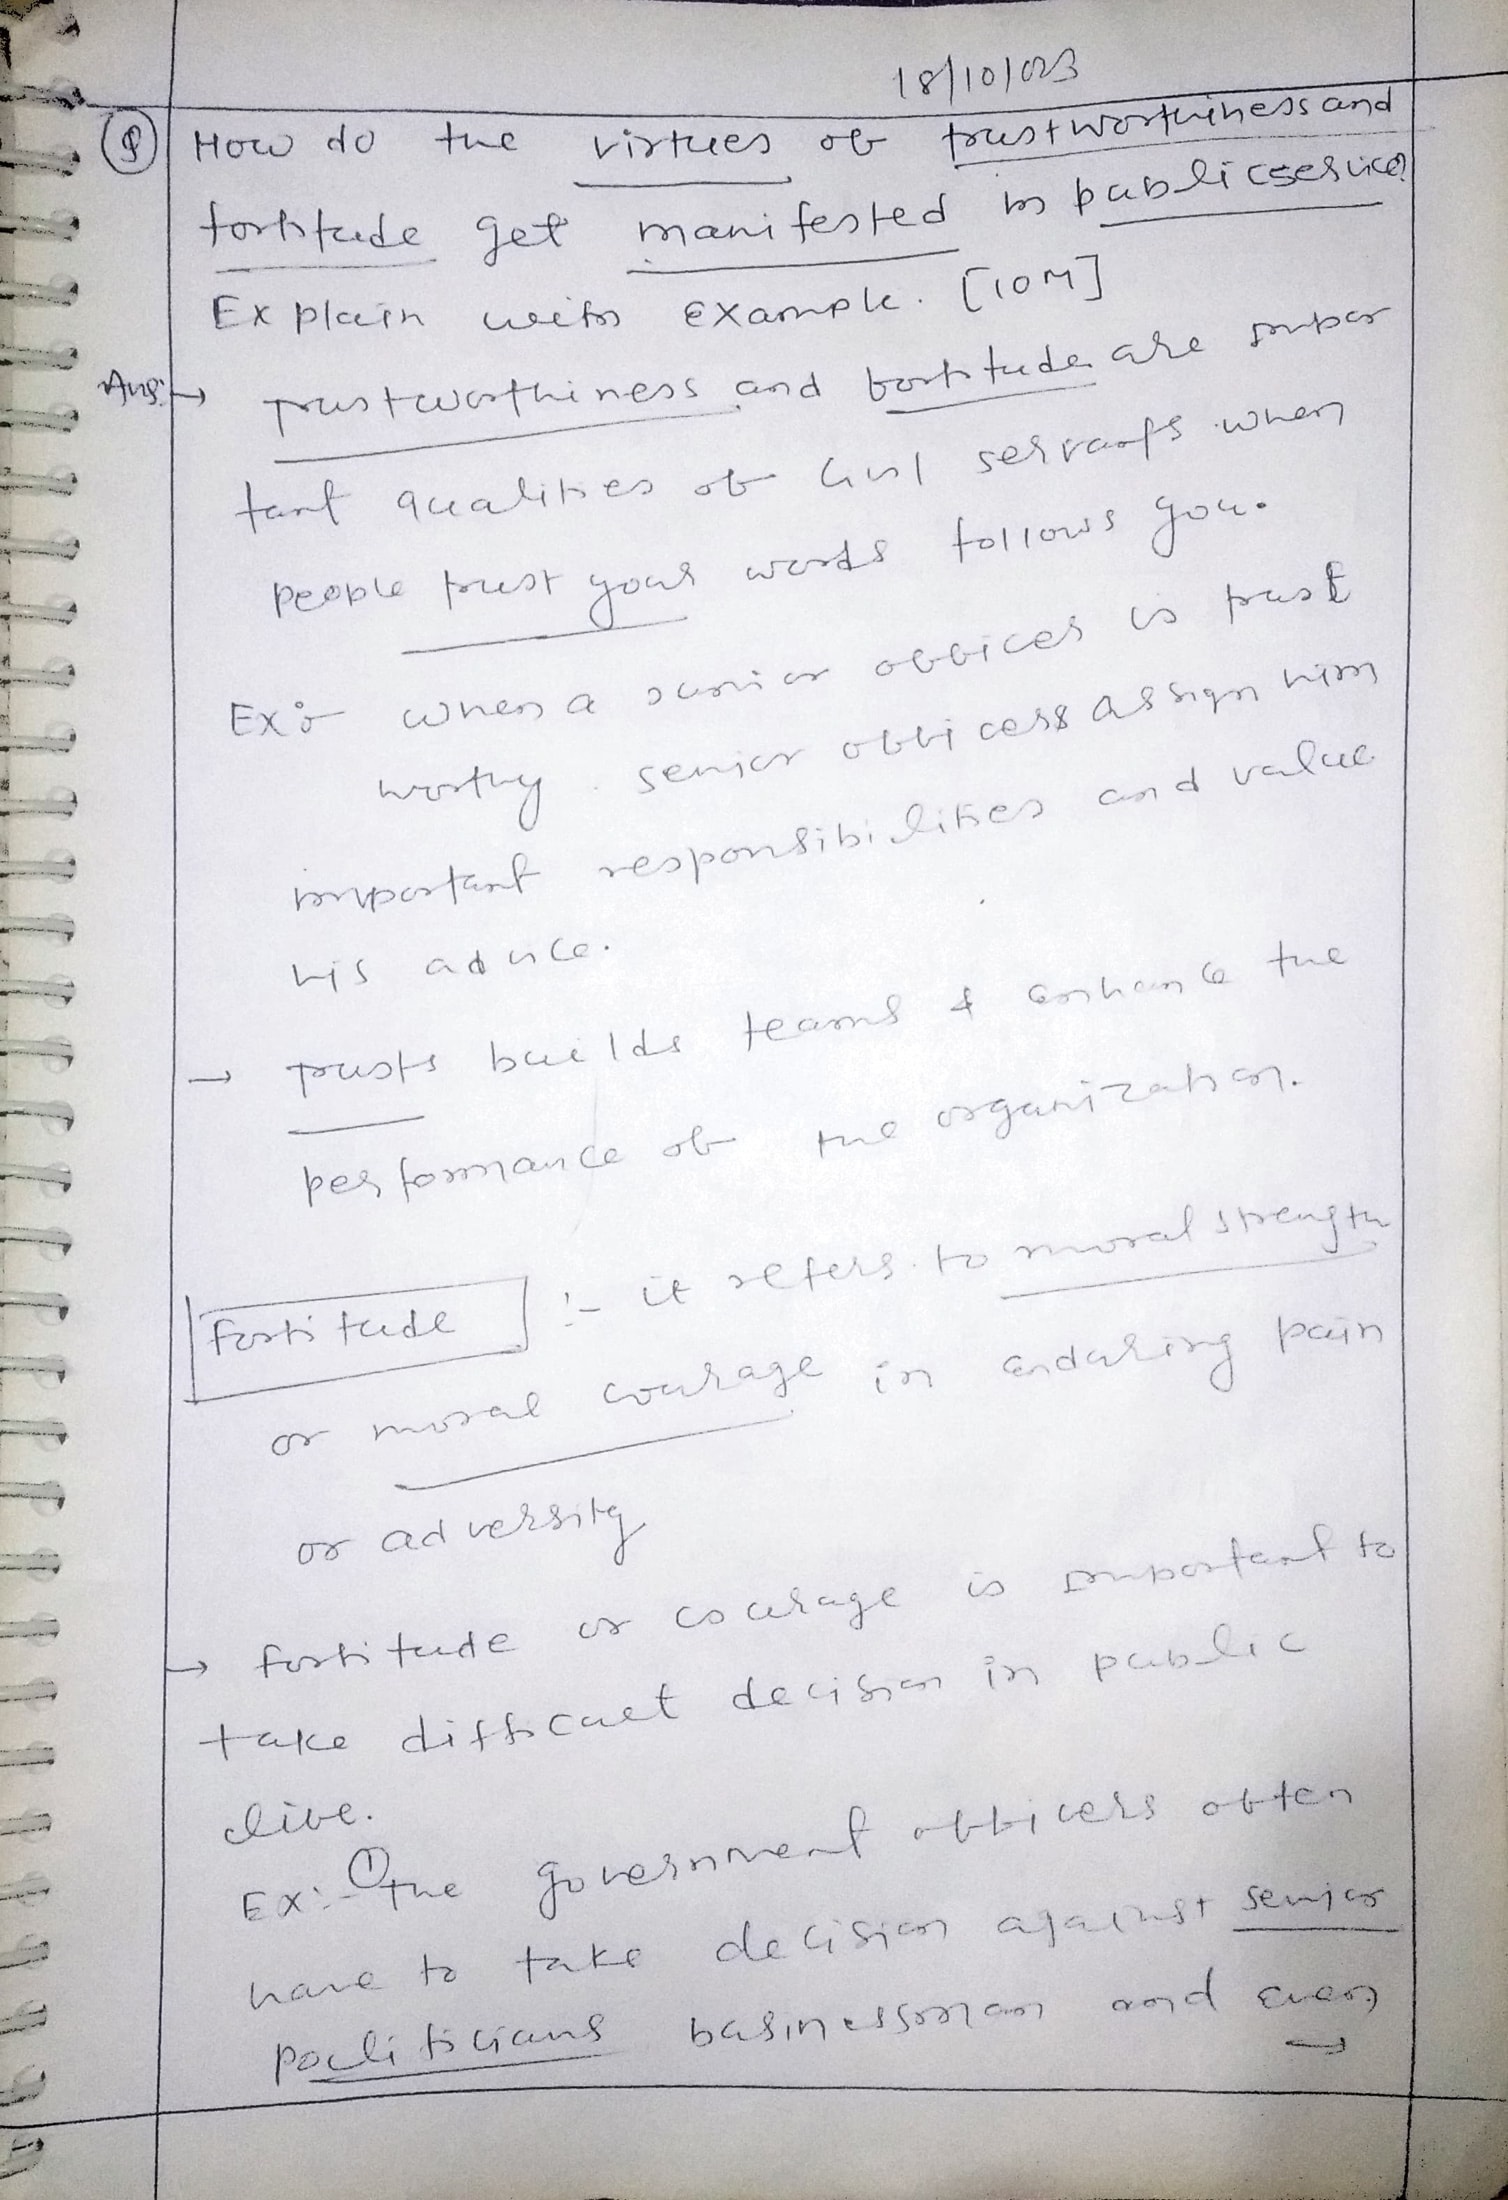 18/10/023
Q How do the virtues of trustworthiness and
fortitude get manifested in public service?
Explain with example. [10M]
Ans:→ Trustworthiness and fortitude are impor
tant qualities of Civil servants when
people trust your words follows you.
Ex:- when a junior officer is trust
worthy. senior officers assign him
important responsibilities and value
his advice.
→ Trusts builds teams & enhance the
performance of the organization.
Fortitude :- it refers to moral strength
or moral courage in enduring pain
or adversity
→ fortitude or courage is important to
take difficult decision in public
live.
Ex:- ① the government officers often
have to take decision against senior
politicians businessman and even
→